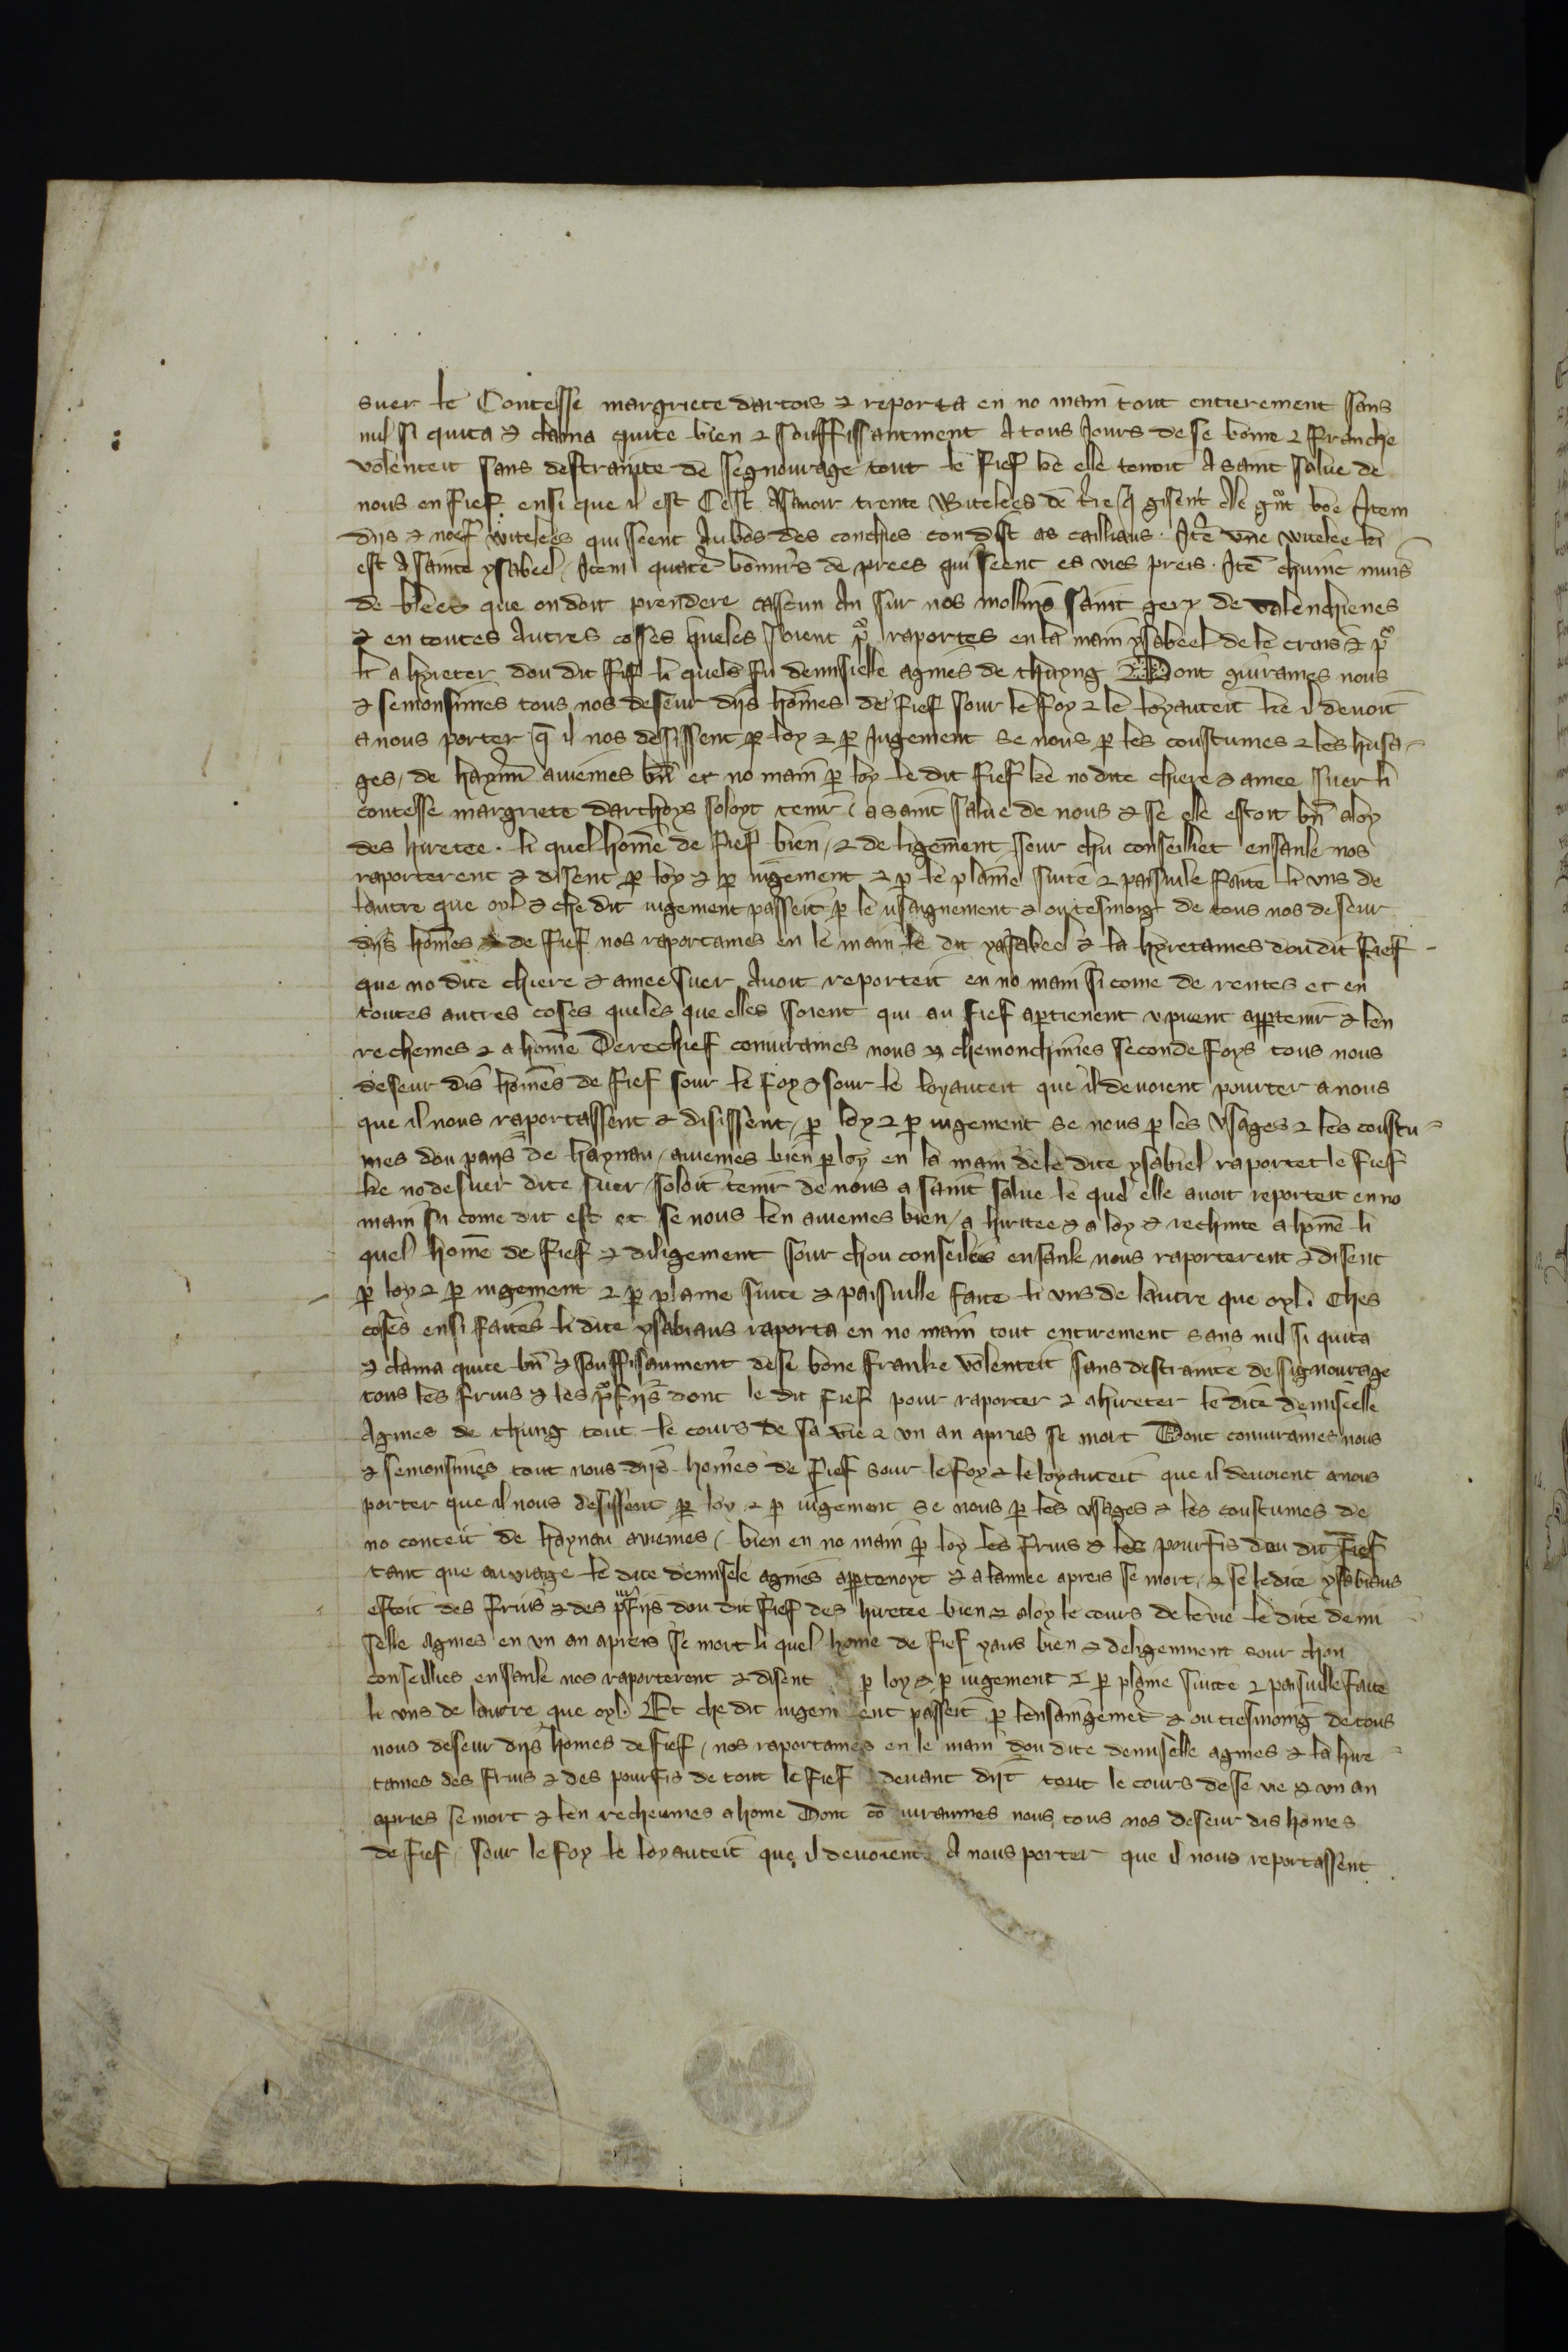 suer le Contesse margriete dartois ⁊ reporta en no main tout entierement sans
nul si quita ⁊ clama quite bien ⁊ souffissantment A tous Jours de se bonne ⁊ franche
volenteit sans destrainte de segnourage tout le fief ke elle tenoit A saint salue de
nous en fief ensi que il est Cest Asauoir trente Witelees de tre q̄ gisent
dijs ⁊ noef witelees qui seent Au bos des conchies con dist as caillaus . Itē vne witelee ki
est A sainte ysabeel / Item quatre bonnirs de prees qui seent es vies preis . Itē chuinc muis
de bleet que on doit prendere cascun An sur nos mollins saint gery de valenchienes
⁊ en toutes Autres cosses queles soient p̄ raportes en la main ysabeel de le crois ⁊ p̄
li ahyreter dou dit fief li quels fu demisielle agnies de thuyng Dont guirames nous
⁊ semonsimes tous nos deseur dijs hom̄es de fief sour le foy ⁊ le loyauteit ke il deuoit
a nous porter q̄ il nos desissent p̄ loy ⁊ p̄ Jugement se nous p̄ les coustumes ⁊ les husa-
ges / de haynn̄ auiemes bn̄ et no main p̄ loy le dit fief ke no dite chiere ⁊ amee suer li
contesse margriete darthoys soloyt tenir a saint salue de nous ⁊ se elle estoit bn̄ a loy
des hiretee . li quel hom̄e de fief bien / ⁊ de ligem̄ent seur chu conselliet ensanle nos
raporterent ⁊ disent p̄ loy ⁊ p̄ iugement ⁊ p̄ le plaine siute ⁊ paisiule faite li vns de
lautre que oyl ⁊ che dit iugement passeit p̄ le nsaignement ⁊ ou tesmoig de tous nos deseur
dijs hom̄es de fief nos raportames en le main le dit ysabeel ⁊ la hyretames dou dit fief -
que no dite chiere ⁊ amee suer Auoit reporteit en no main si come de rentes et en
toutes autres coses queles que elles soient qui au fief apertienent v puent appertenir ⁊ len
rechemes ⁊ a hom̄e Derechief coniurames nous ⁊ chemonchimes seconde foys tous nous
deseur dis hom̄es de fief sour le foy ⁊ sour le loyauteit que il deuoient pourter a nous
que il nous raportassent ⁊ disissent / p̄ loy ⁊ p̄ iugement se nous p̄ les vsages ⁊ les coustu-
mes dou pays de haynau / auiemes bien p̄ loy en la main de le dite ysabiel raportet le fief
ke no desuer dite suer / soloit tenir de nous a saint salue le quel elle auoit reporteit en no
main si come dit est et se nous len auiemes bien / a hiritee ⁊ a loy ⁊ rechute a hom̄e li
quel hom̄e de fief ⁊ diligement sour chou conseillies ensanle nous raporterent ⁊ disent
p̄ loy ⁊ p̄ iugement ⁊ p̄ plaine siute ⁊ paisiulle faite li vns de lautre que oyl . Ches
coses ensi faites li dite ysabiaus raporta en no main tout entirement sans nul si quita
⁊ clama quite bn̄ ⁊ souffisaument de se bone franke volenteit sans destrainte de signourage
tous les fruis ⁊ les p̄fijs dont le dit fief pour raporter ⁊ ahireter le dite demiselle
Agnies de thuing tout le cours de sa vie ⁊ vn an apries se mort Dont coniurames nous
⁊ semonsimes tout nous dijs hom̄es de fief sour le foy ⁊ le loyauteit que il deuoient a nous
porter que il nous desissent p̄ loy ⁊ p̄ iugement se nous p̄ les vsages ⁊ les coustumes de
no conteit de haynau auiemes / bien en no main p̄ loy les fruis ⁊ les pourfis dou dit fief
tant que au viage le dite demisele agnies appertenoyt ⁊ a lannee apreis se mort / ⁊ se le dite ysabiaus
estoit des fruis ⁊ des p̄fijs dou dit fief des hiretee bien ⁊ a loy le cours de le vie le dite demi
selle Agnies en vn an apreis se mort li quel home de fief yaus bien ⁊ deligemment sour chou
conseillies ensanle nos raporterent ⁊ disent p̄ loy ⁊ p̄ iugement ⁊ p̄ plaine siute ⁊ paisiulle faite
li vns de lautre que oyl . Et che dit iugement passeit p̄ lensaingemēt ⁊ ou tiesmoing de tous
nous deseur dijs homes de fief / nos raportames en le main dou dite demiselle agnies ⁊ la hire-
tames des fruis ⁊ des pourfis de tout le fief deuant dijt tout le cours de sse vie ⁊ vn an
apries se mort ⁊ len recheumes a home Dont cō iuraumes nous tous nos deseur dis homes
de fief / sour le foy le loyauteit que il deuoient A nous porter que il nous reportassent